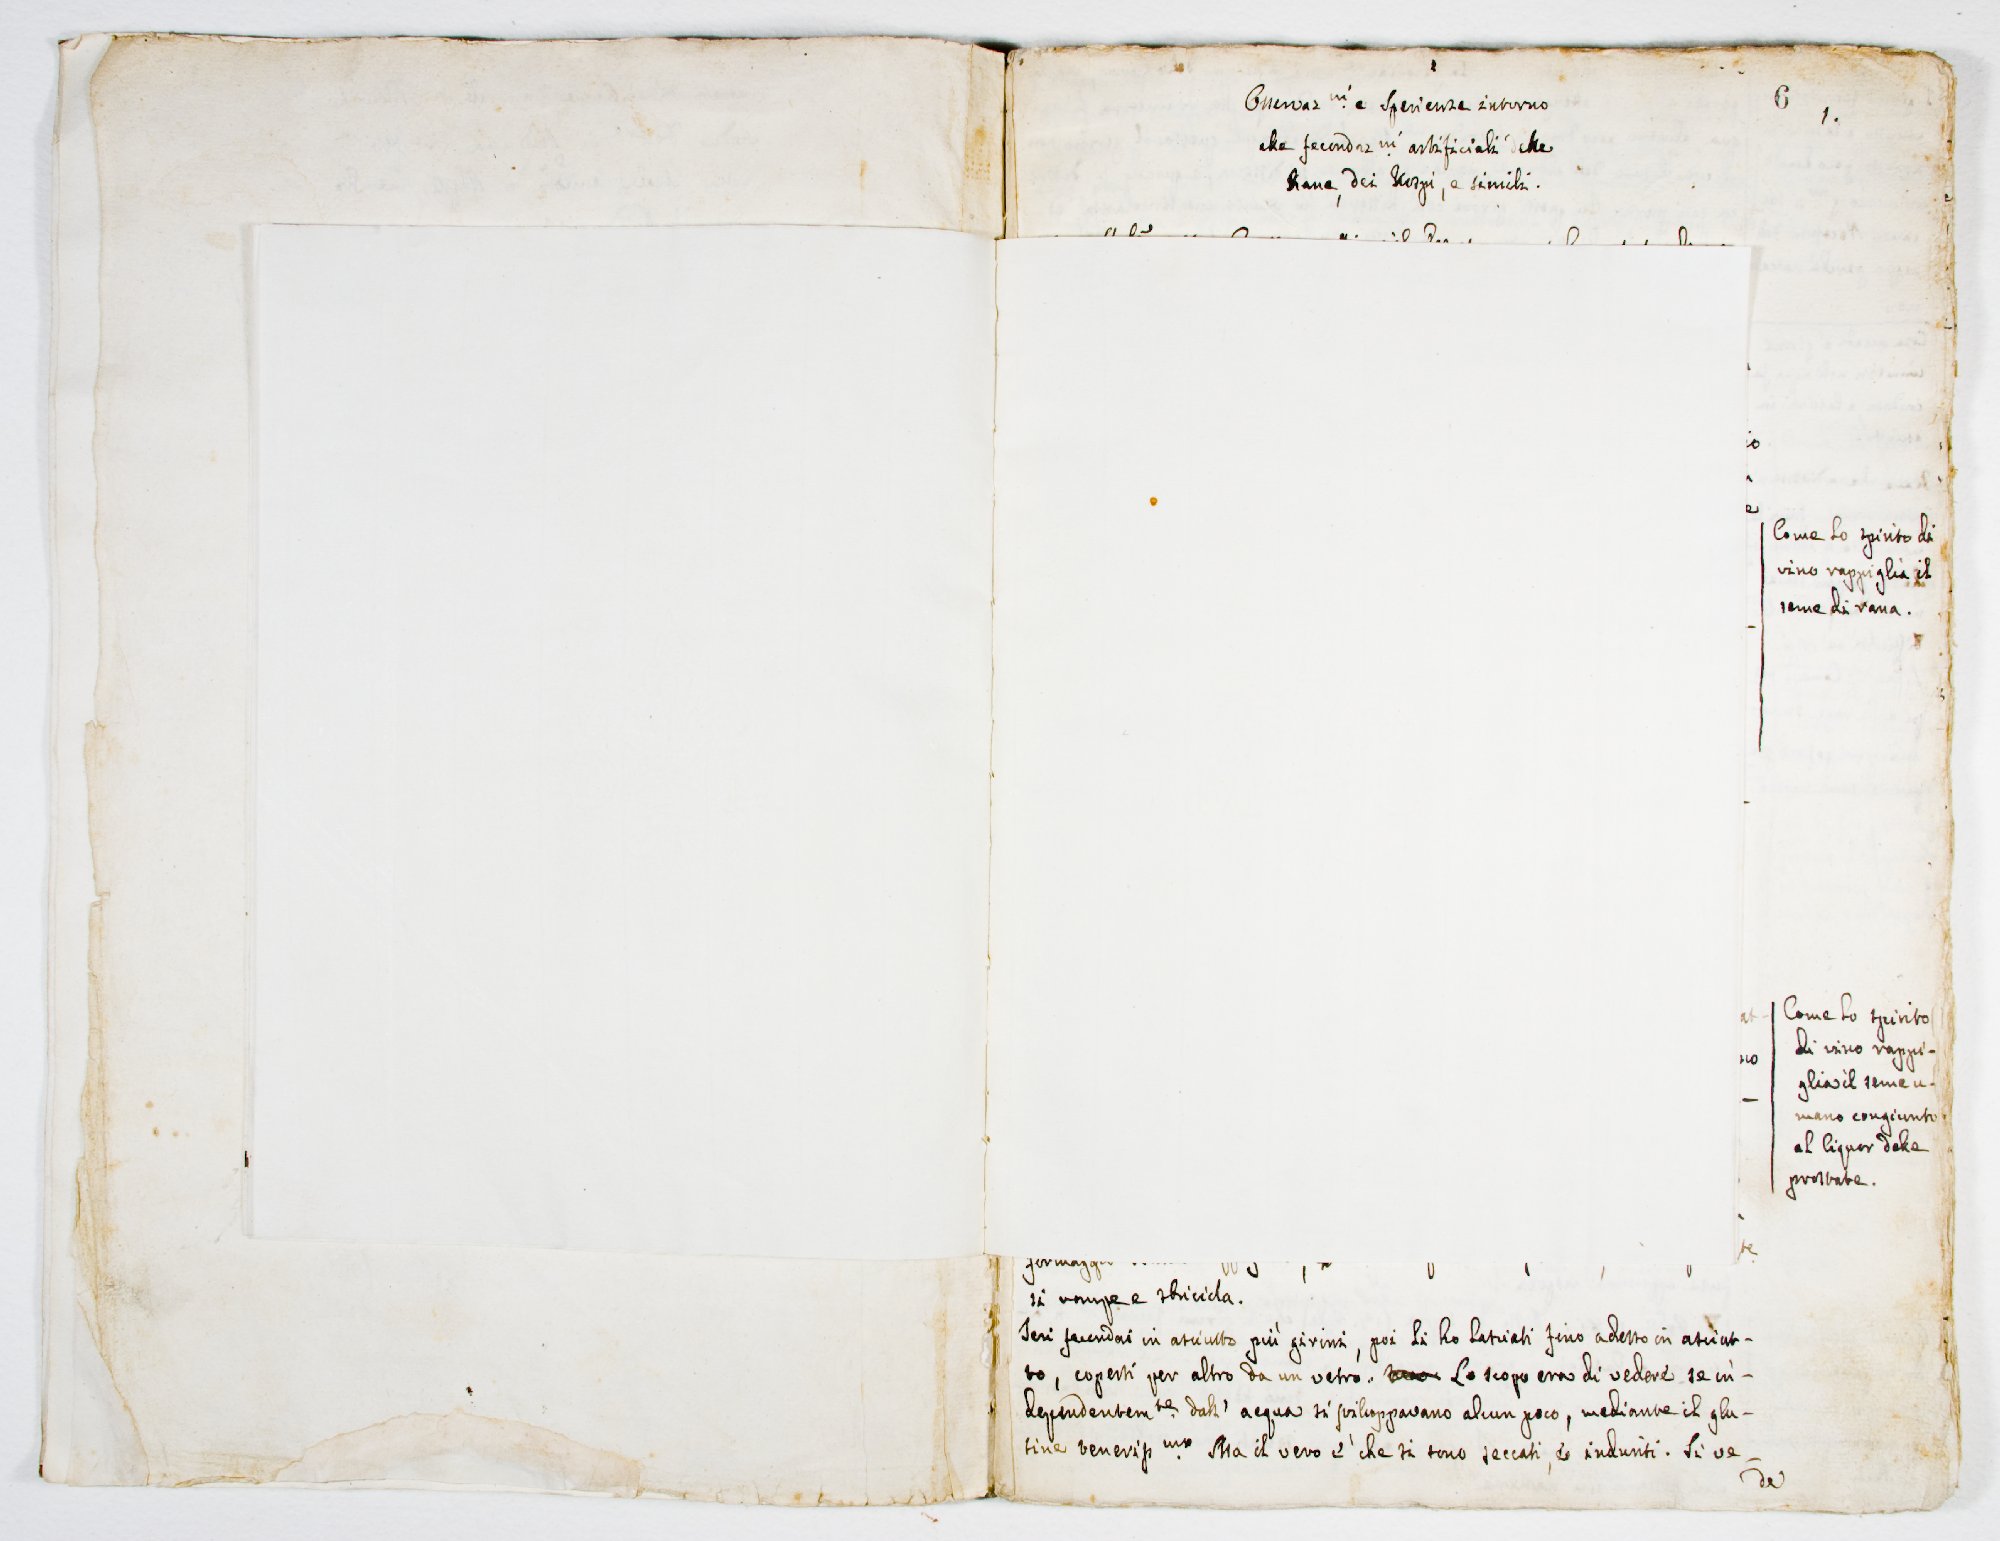 6
1.
Osservaz.ni e Sperienze intorno
alle fecondaz.ni artificiali delle
Rane, dei Rospi, e simili.
Come lo spirito di
vino rappiglia il
seme di rana.
Come lo spirito
di vino rappi-
glia il seme u-
mano congiunto
al liquor delle
prostate.
si rompe e sbriciola.
Ieri fecondai in asciutto più girini, poi li ho lasciati fino adesso in asciut-
to, coperti per altro da un vetro. Lo scopo era di vedere se in-
dependentem.te dall' acqua si sviluppavano alcun poco, mediante il glu-
tine Ma il vero è che si sono seccati, e induriti. Si ve-
de